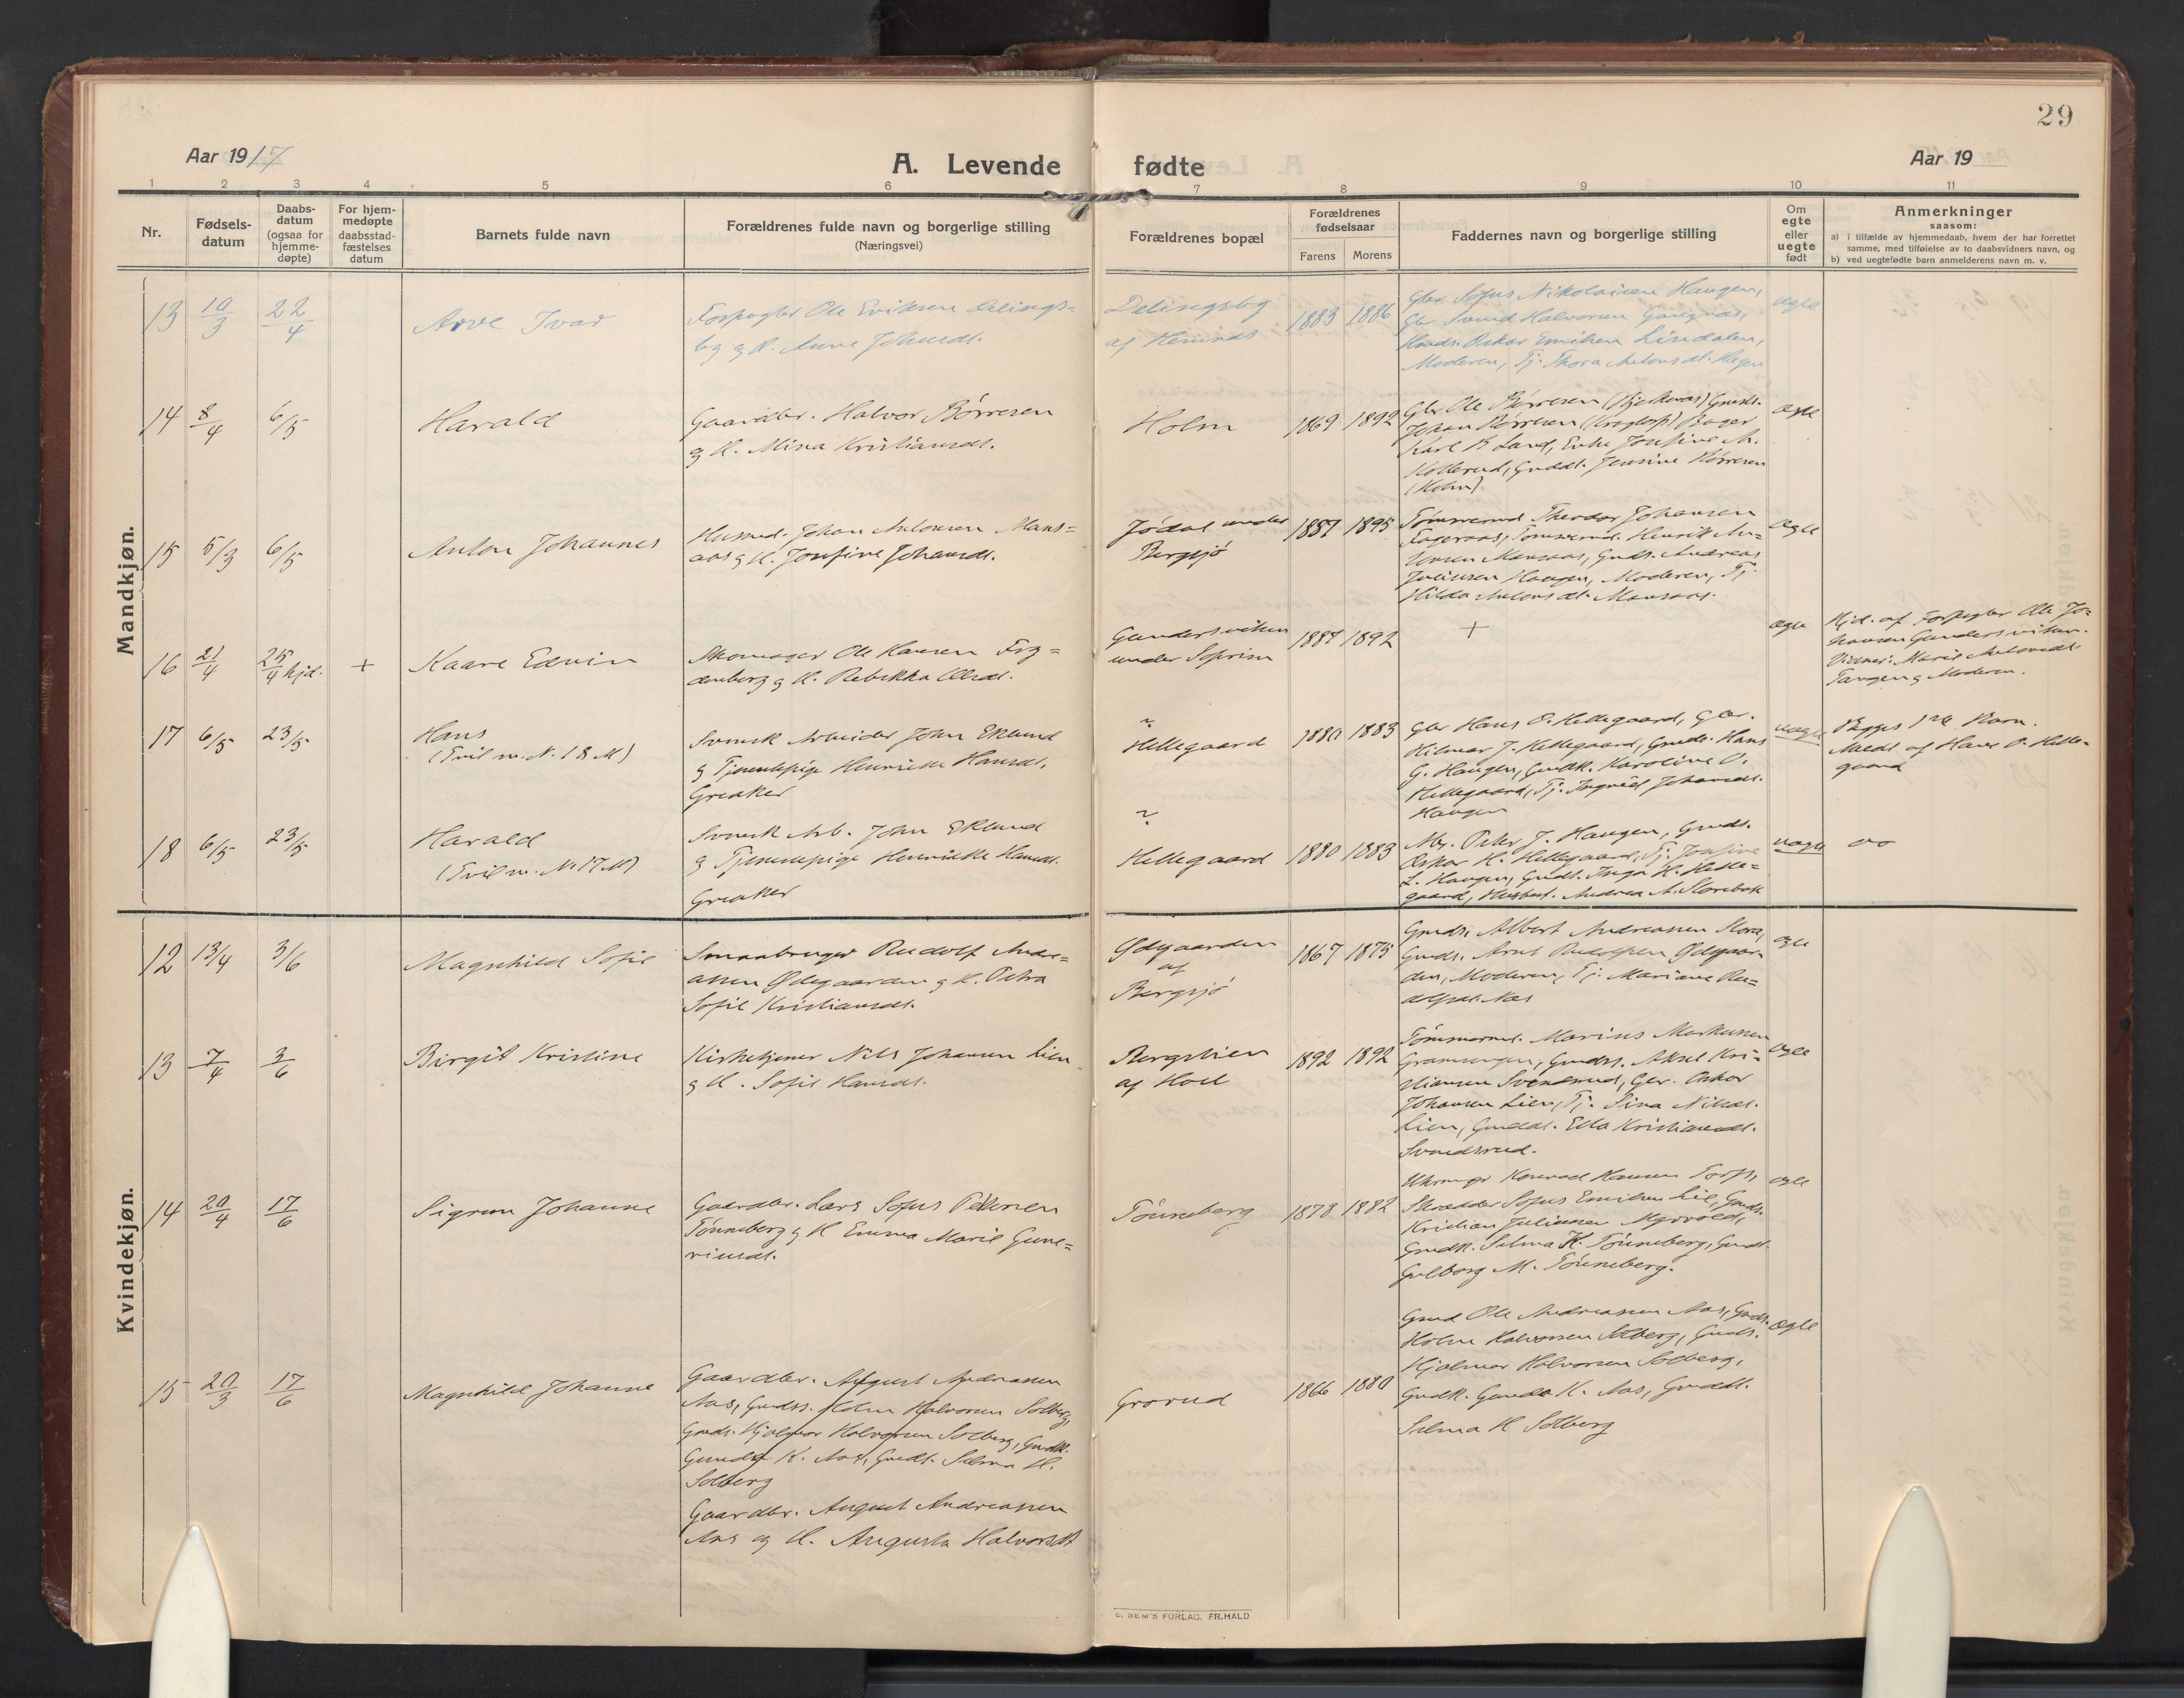 29
Aar 1917
A. Levende fødte
Aar 19
1 2 3 4 5 6 7 8 9 10 11
Nr.
Fødsels-
datum
Daabs-
datum
(ogsaa for
hjemme-
døpte)
For hjem-
medøpte
daabsstad-
fæstelses
datum
Barnets fulde navn
Forældrenes fulde navn og borgerlige stilling
(Næringsvei)
Forældrenes bopæl
Forældrenes
fødselsaar
Farens Morens
Faddernes navn og borgerlige stilling
Om
egte
eller
uegte
født
Anmerkninger
saasom:
a) i tilfælde av hjemmedaab, hvem der har forrettet
samme, med tilføielse av to daabsvidners navn, og
b) ved uegtefødte barn anmelderens navn m. v.
Mandkjøn.
13 10/3 22/4
Arve Ivar
Forpagter Ole Eriksen Delingsby
1883 1886
Gbr. Sofus Nikolaisen Haugen,
Gbr. Svend Halvorsen
Oskar Emilsen Lindalen,
Moderen, Tj. Thora Antonsdt.
14 8/4 6/5
Harald
Gaardbr. Halvor Børresen
og H. Mina Kristiansdt.
Holm
1869 1892
Gbr Ole Børresen
Johan Børresen
Karl B Lund, Enke Josefine
Jensine Børresen
(Holm)
ægte
15 5/3 6/5
Anton Johannes
Husmd. Johan Antonsen Mans=
aas og H. Josefine Johansdt.
Jødal under
Bergsjø
1887 1895
Tømmermd. Theodor Johansen
Tømmermd. Henrik An-
tonsen Mansaas, Gmds. Andreas
Juliusen Haugen, Moderen, Tj.
Hilda Antonsdt. Mansaas.
ægte
16 21/4 25/4 hjd. +
Kaare Edvin
Skomager Ole Hansen Fry=
denberg og H. Rebekka Olsdt.
Gundersviken
under
1887 1892
+
ægte
Hjd. af Forpagter Ole Jo=
hansen Gundersviken.
Vidner: Marie
Tangen og Moderen.
17 6/5 23/5
Hans
(Tvil. m. N. 18 M)
Svensk Arbeider John Eklund
og Tjenestepige Henriette Hansdt.
Greaker
?
Hellegaard
1880 1883
Gbr Hans O. Hellegaard, Gbr.
Hilmar J. Hellegaard, Gmds. Hans
G. Haugen, Gmdk. Karoline O.
Hellegaard, Tj. Ingrid Johansdt.
Haugen
uægte
Begges 1ste Barn.
Meldt af Hans O. Helle-
gaard
18 6/5 23/5
Harald
(Tvil. m. N. 17 M)
Svensk Arb. John Eklund
og Tjenestepige Henriette Hansdt.
Greaker
?
Hellegaard
1880 1883
Peter J. Haugen, Gmds.
Oskar H. Hellegaard, Tj. Josefine
L. Haugen, Gmdt. Inga H. Helle=
gaard, Andrea A. Storebak
uægte
do
Kvindekjøn.
12 13/4 3/6
Magnhild Sofie
Smaabruger Rudolf Andre=
assen Ødegaarden og H. Petra
Sofie Kristiansdt.
Ødegaarden
af
Bergsjø
1867 1875
Gmds. Albert Andreassen Skora,
Gmds. Arnt Rudolfsen Ødegaar-
den, Moderen, Tj. Mariane Ru=
dolfsdt.
ægte
13 7/4 3/6
Birgit Kristine
Kirketjener Nils Johansen Lien
og H. Sofie Hansdt.
Bergslien
af Hoel
1892 1892
Tømmermd. Marius Markussen
Gmds. Aksel Kri-
stiansen Svendsrud, Gbr. Oskar
Johansen Lien, Tj. Sina Nilsdt.
Lien, Gmddt. Ella Kristiansdt.
Svendsrud.
ægte
14 20/4 17/6
Sigrun Johanne
Gaardbr. Lars Sofus Pedersen
Tønneberg og H Emma Marie Gune=
riusdt.
Tønneberg
1878 1882
Konrad Hansen Torp,
Skrædder Sofus Emilsen Lie, Gmds.
Kristian Juliussen Myrvold,
Gmdk. Selma K. Tønneberg, Gmdt.
Gulborg M. Tønneberg.
ægte
15 20/3 17/6
Magnhild Johanne
Gaardbr. August Andreassen
Aas, Gmds. Holm Halvorsen Solberg,
Gmds. Hjalmar Halvorsen Solberg, Gmdk.
Gunda K. Aas, Gmdt. Selma H.
Solberg
Gaardbr. August Andreassen
Aas og H. Augusta Halvorsdt
Grorud
1866 1880
Gmd Ole Andreassen Aas, Gmds.
Holm Halvorsen Solberg, Gmds.
Hjalmar Halvorsen Solberg,
Gmdk. Gunda K. Aas, Gmdt.
Selma H Solberg
ægte
E. SEM'S FORLAG. FR.HALD